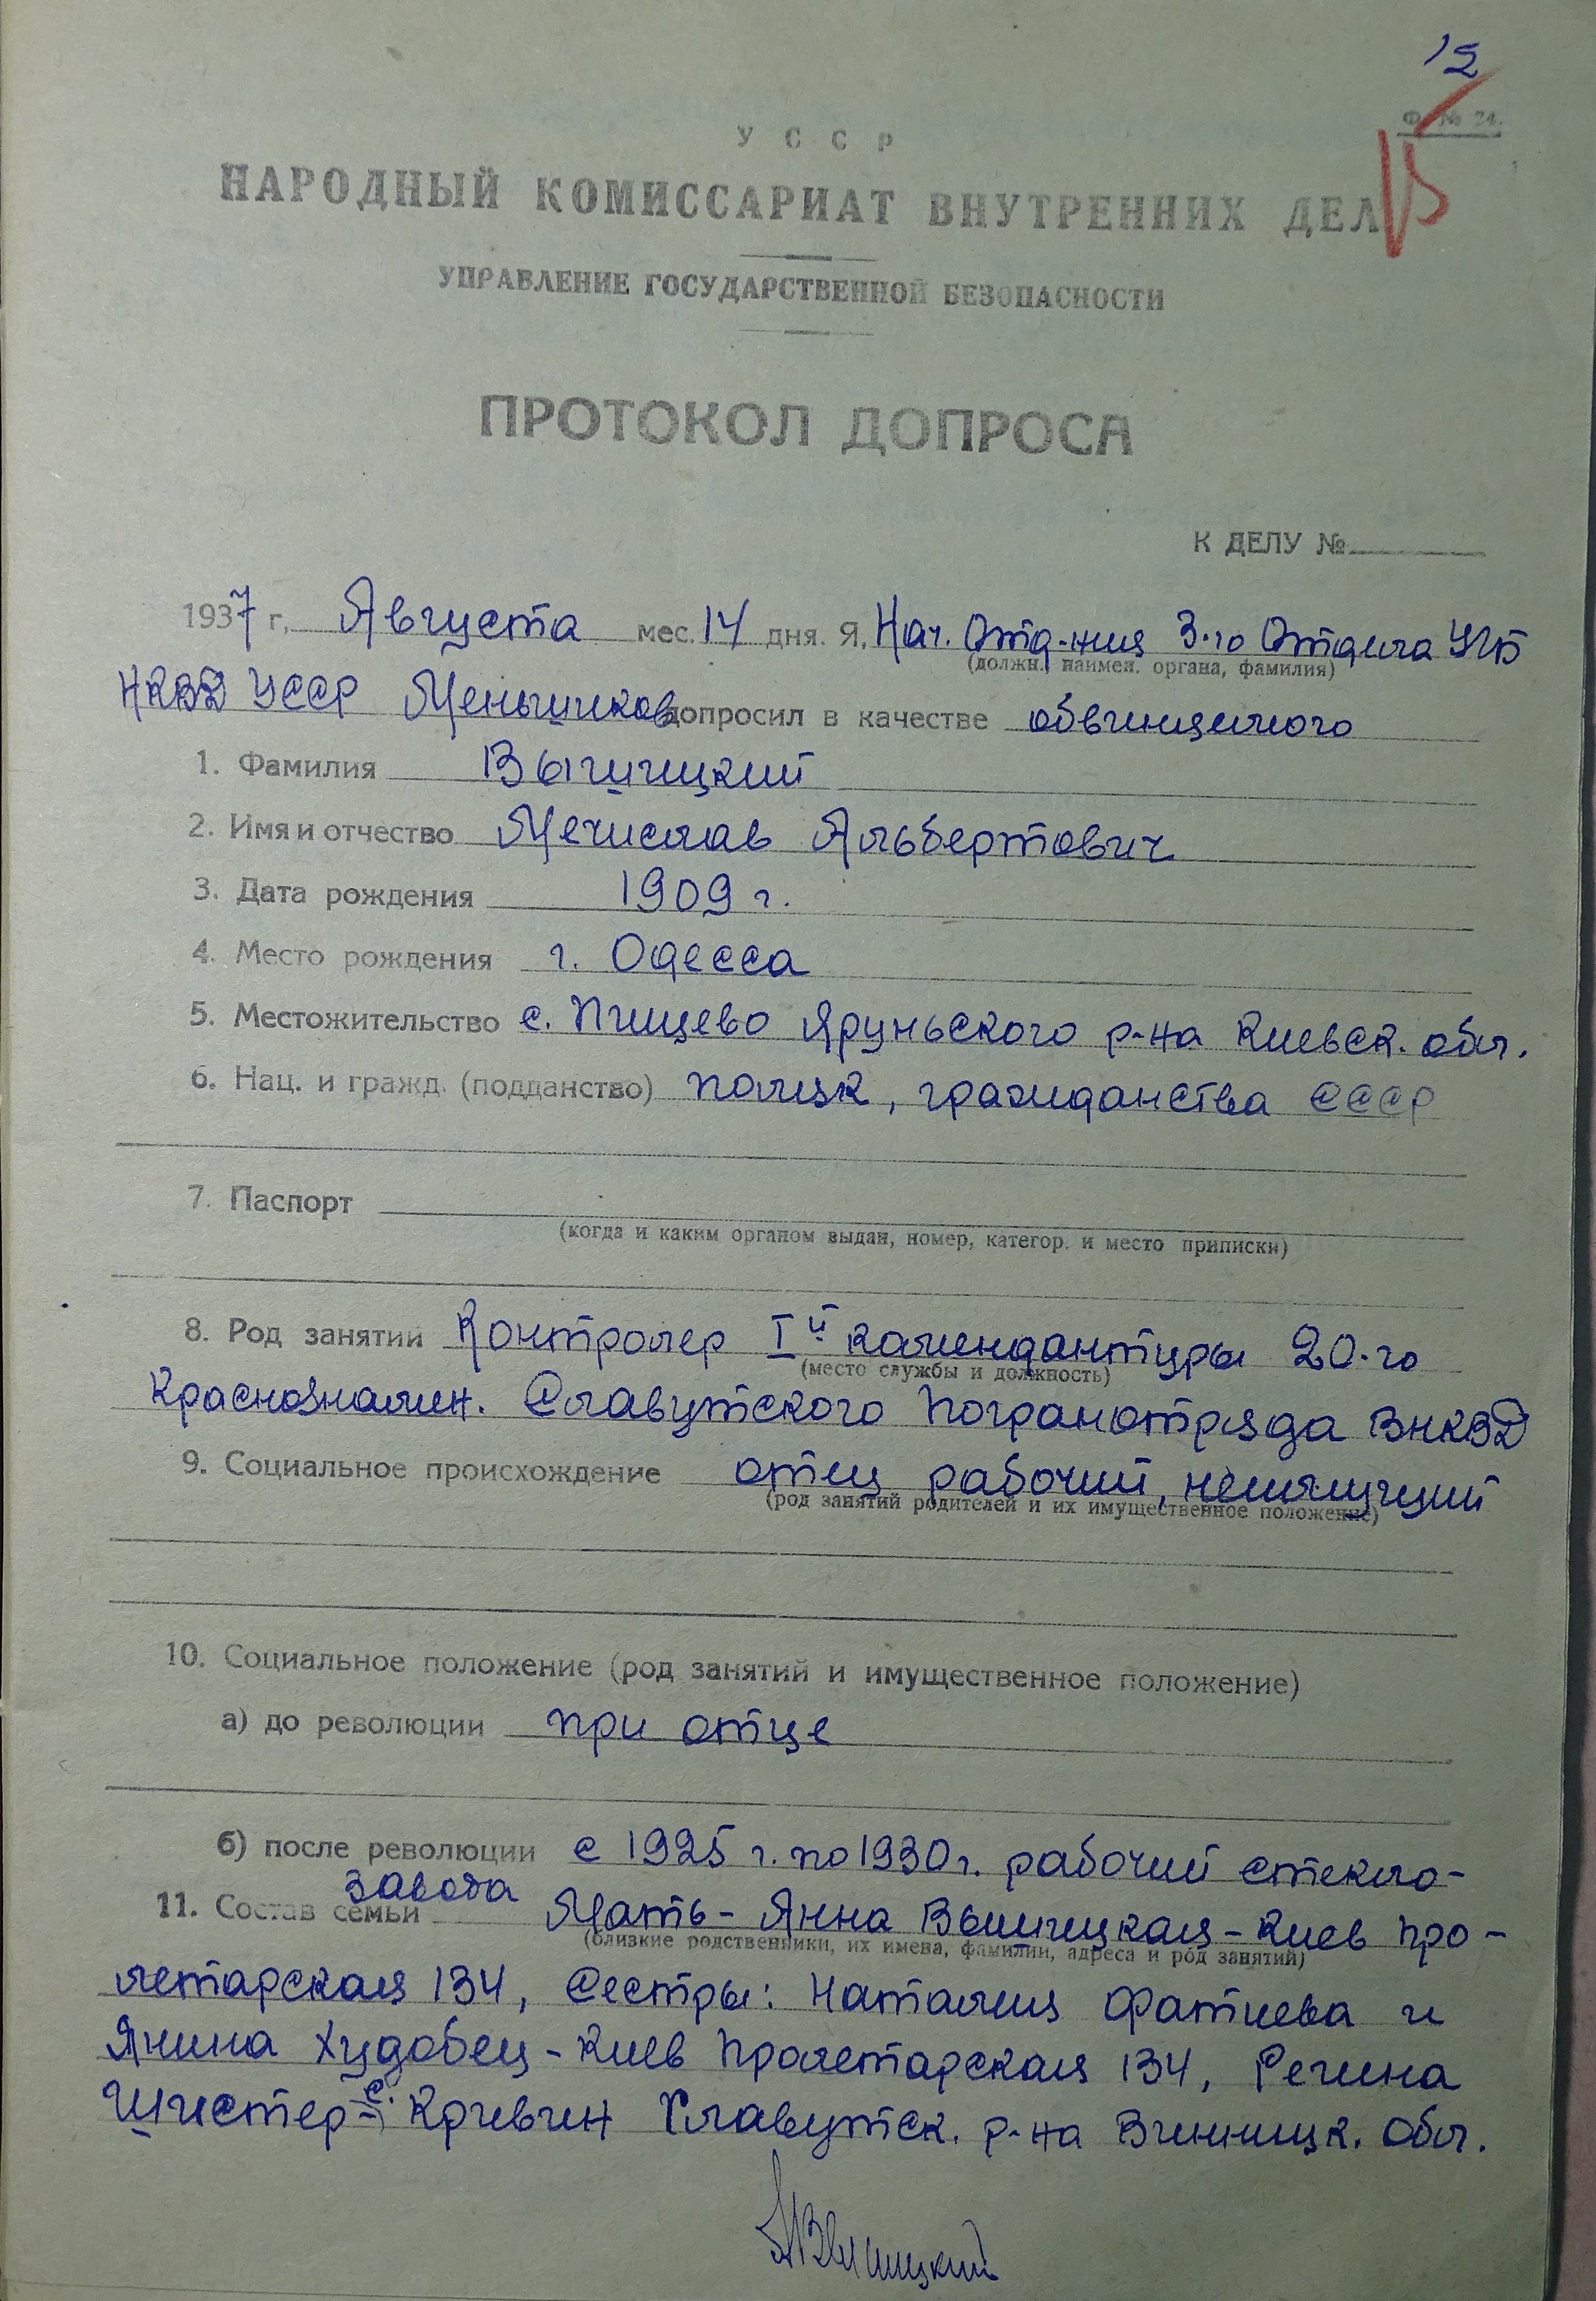 15
Ф. № 24.
15
У С С Р
НАРОДНЫЙ КОМИССАРИАТ ВНУТРЕННИХ ДЕЛ
УПРАВЛЕНИЕ ГОСУДАРСТВЕННОЙ БЕЗОПАСНОСТИ
ПРОТОКОЛ ДОПРОСА
К ДЕЛУ №
1937 г. Августа мес. 14 дня. Я, Нач. Отд-ния 3-го Отдела УГБ
(должн., наимен. органа, фамилия)
НКВД УССР Меньшиков допросил в качестве обвиняемого
1. Фамилия Вышицкий
2. Имя и отчество Мечислав Альбертович
3. Дата рождения 1909 г.
4. Место рождения г. Одесса
5. Местожительство с. Пищево Яруньского р-на Киевск. обл.
6. Нац. и гражд. (подданство) поляк, гражданства СССР
7. Паспорт
(когда и каким органом выдан, номер, категор. и место приписки)
8. Род занятий Контролер I й комендантуры 20-го
(место службы и должность)
Краснознамен. Славутского Погранотряда ВНКВД
9. Социальное происхождение отец рабочий, неимущий
(род занятий родителей и их имущественное положение)
10. Социальное положение (род занятий и имущественное положение)
а) до революции при отце
б) после революции с 1925 г. по 1930 г. рабочий стекло-
завода
11. Состав семьи Мать - Анна Вышицкая - Киев Про-
(близкие родственники, их имена, фамилии, адреса и род занятий)
летарская 134, Сестры: Наталия Фатиева и
Янина Худобец - Киев Пролетарская 134, Регина
Шистер - с. Кривин Славутск. р-на Винницк. Обл.
МВышицкий